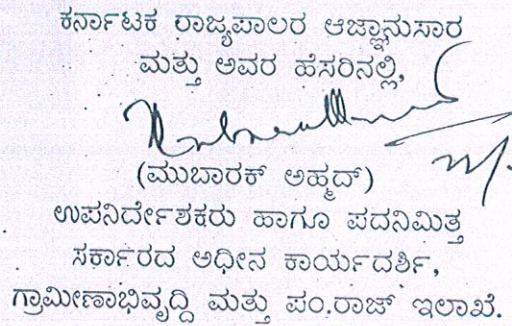 ಕರ್ನಾಟಕ ರಾಜ್ಯಪಾಲರ ಆಜ್ಞಾನುಸಾರ
ಮತ್ತು ಅವರ ಹೆಸರಿನಲ್ಲಿ,
(ಮುಬಾರಕ್ ಅಹ್ಮದ್)
ಉಪನಿರ್ದೇಶಕರು ಹಾಗೂ ಪದನಿಮಿತ್ತ
ಸರ್ಕಾರದ ಅಧೀನ ಕಾರ್ಯದರ್ಶಿ,
ಗ್ರಾಮೀಣಾಭಿವೃದ್ಧಿ ಮತ್ತು ಪಂ.ರಾಜ್ ಇಲಾಖೆ.